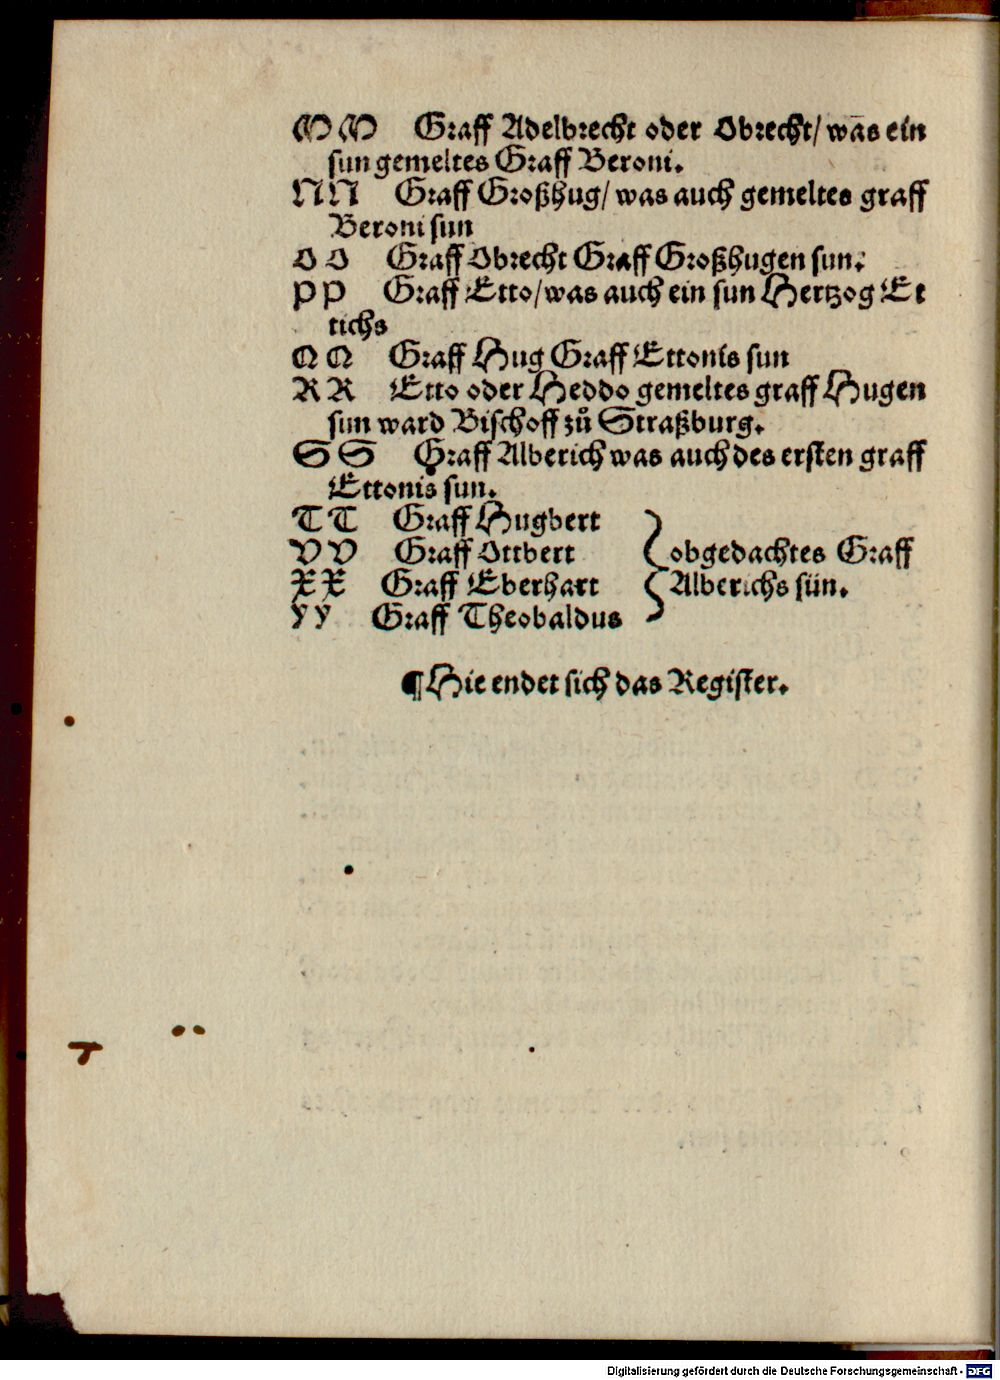 MM Graff Adelbrecht oder Obrecht/ was ein
sun gemeltes Graff Beroni.
NN Graff Großhug/ was auch gemeltes graff
Beroni sun
OO Graff Obrecht Graff Großhugen sun.
PP Graff Etto/was auch ein sun Hertzog Et
tichs
QQ Graff Hug Graff Ettonis sun
RR Etto oder Heddo gemeltes graff Hugen
sun ward Bischoff zů Straßburg.
SS Graff Alberich was auch des ersten graff
Ettonis sun.
TT Graff Hugbert
VV Graff Ottbert obgedachtes Graff
XX Graff Eberhart Alberichs sün.
YY Graff Theobaldus
¶Hie endet sich das Register.
Digitalisierung gefördert durch die Deutsche Forschungsgemeinschaft - DFG